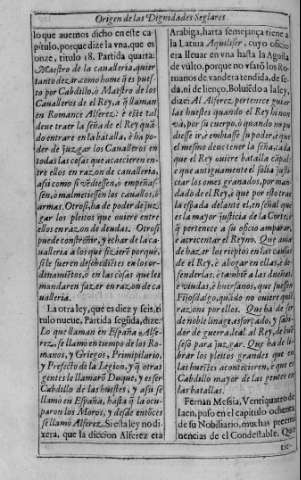 Origen de las Dignidades Seglares
lo que auemos dicho en este ca-
pitulo, porque dize la vna, que es
onze, titulo 18. Partida quarta:
Maestro de la caualleria, quier
tanto dezir como home q̃ es pues-
to por Cabdillo, o Maestro de los
Caualleros de el Rey, a q̃ llaman
en Romance Alferez: è este tal,
deue traer la seña de el Rey quã-
do entrare en la batalla, è ha po-
der de juzgar los Caualleros en
todas las cosas que acaecieren en-
tre ellos en razon de caualleria,
assi como si vẽdiessen, o empeñas-
sen, o malmetiessen los cauallos, ò
armas. Otrosi, ha de poder de juz-
gar los pleitos que ouiere entre
ellos en razon de deudas. Otrosi
puede constreñir, y echar de la ca-
ualleria a los que fizieren porquè,
si le fueren desobedientes en los or-
dinamiẽtos, ò en las cosas que les
mandaren fazer en razon de ca-
ualleria.
La otra ley, que es diez y seis, ti-
tulo nueue, Partida segũda, dize:
Lo que llaman en España Alfe-
rez, se llamò en tiempo de los Ro-
manos, y Griegos, Primipilario,
y Prefecto de la Legion, y q̃ otras
gentes le llamarõ Duque, y es ser
Cabdillo de las huestes, y assi se
llamò en España, hasta q̃ la ocu-
paron los Moros, y desde entõces
se llamò Alferez. Si esta ley no di-
xera, que la diccion Alferez era
Arabiga, harta semejança tiene a
la Latina Aquilifer, cuyo oficio
era lleuar en vna hasta la Aguila
de vulto, porque no vsarõ los Ro-
manos de vandera tendida, de se-
da, ni de lienço. Boluiẽdo a la ley,
dize: Al Alferez pertenece guiar
las huestes quando el Rey no
và por su cuerpo, ò quando no pu-
diesse ir, è embiasse su poder, è que
el mesmo deue tener la seña, ca-
que el Rey ouiere batalla cãpal:
è que antiguamente el solia jus-
ticiar los omes granados, por man-
dado de el Rey, è que por esto trae
la espada delante el, en señal que
es la mayor justicia de la Corte, è
q̃ pertenece a su oficio amparar,
è acrecentar el Reyno. Que ansi
de hazer los rieptos en las cosas
de el Rey, è abogar en ellas, è de-
fenderlas: è tambiẽ a las dueñas,
è viudas, è huerfanos, que fuessen
Fijosdalgo, quãdo no ouiere quiẽ
razone por ellos. Que ha de ser
de noble linage, esforçado, y sabi-
dor de guerra, leal al Rey, de buẽ
seso para juzgar. Que ha de li-
brar los pleitos grandes que en
las huestes acontecieren, è que es
Cabdillo mayor de las gentes en
las batallas.
Fernan Messia, Ventiquatro de
Iaen, puso en el capitulo ochenta
de su Nobiliario, muchas preemi-
nencias de el Condestable. Que